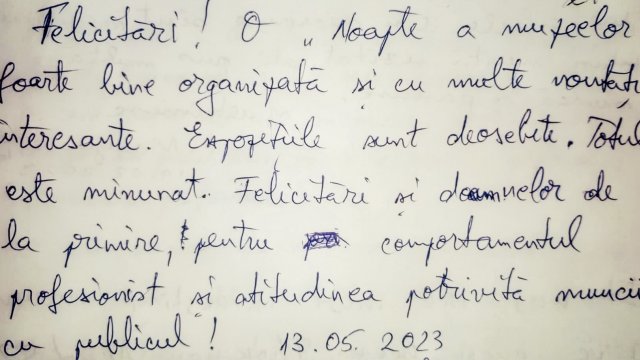 Felicitări! O „Noapte a muzeelor
foarte bine organizată și cu multe noutăți
interesante. Expozițiile sunt deosebite. Totul
este minunat. Felicitări și doamnelor de
la primire, pentru comportamentul
profesionist și atitudinea potrivită muncii
cu publicul! 13.05.2023